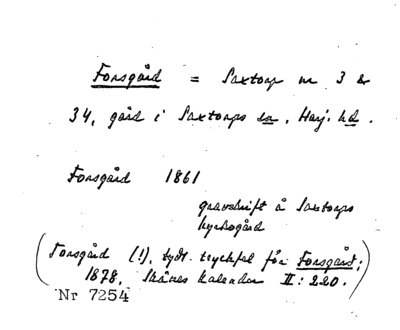 Forsgård = Saxtorp nr 3 &
34, gård i Saxtorps sn, Harj. hd.
Forsgård 1861
gravskrift å Saxtorps
kyrkogård
(Torsgård (!), tydl. tryckfel för Forsgård;
1878, Skånes Kalender II: 220.)
Nr 7254